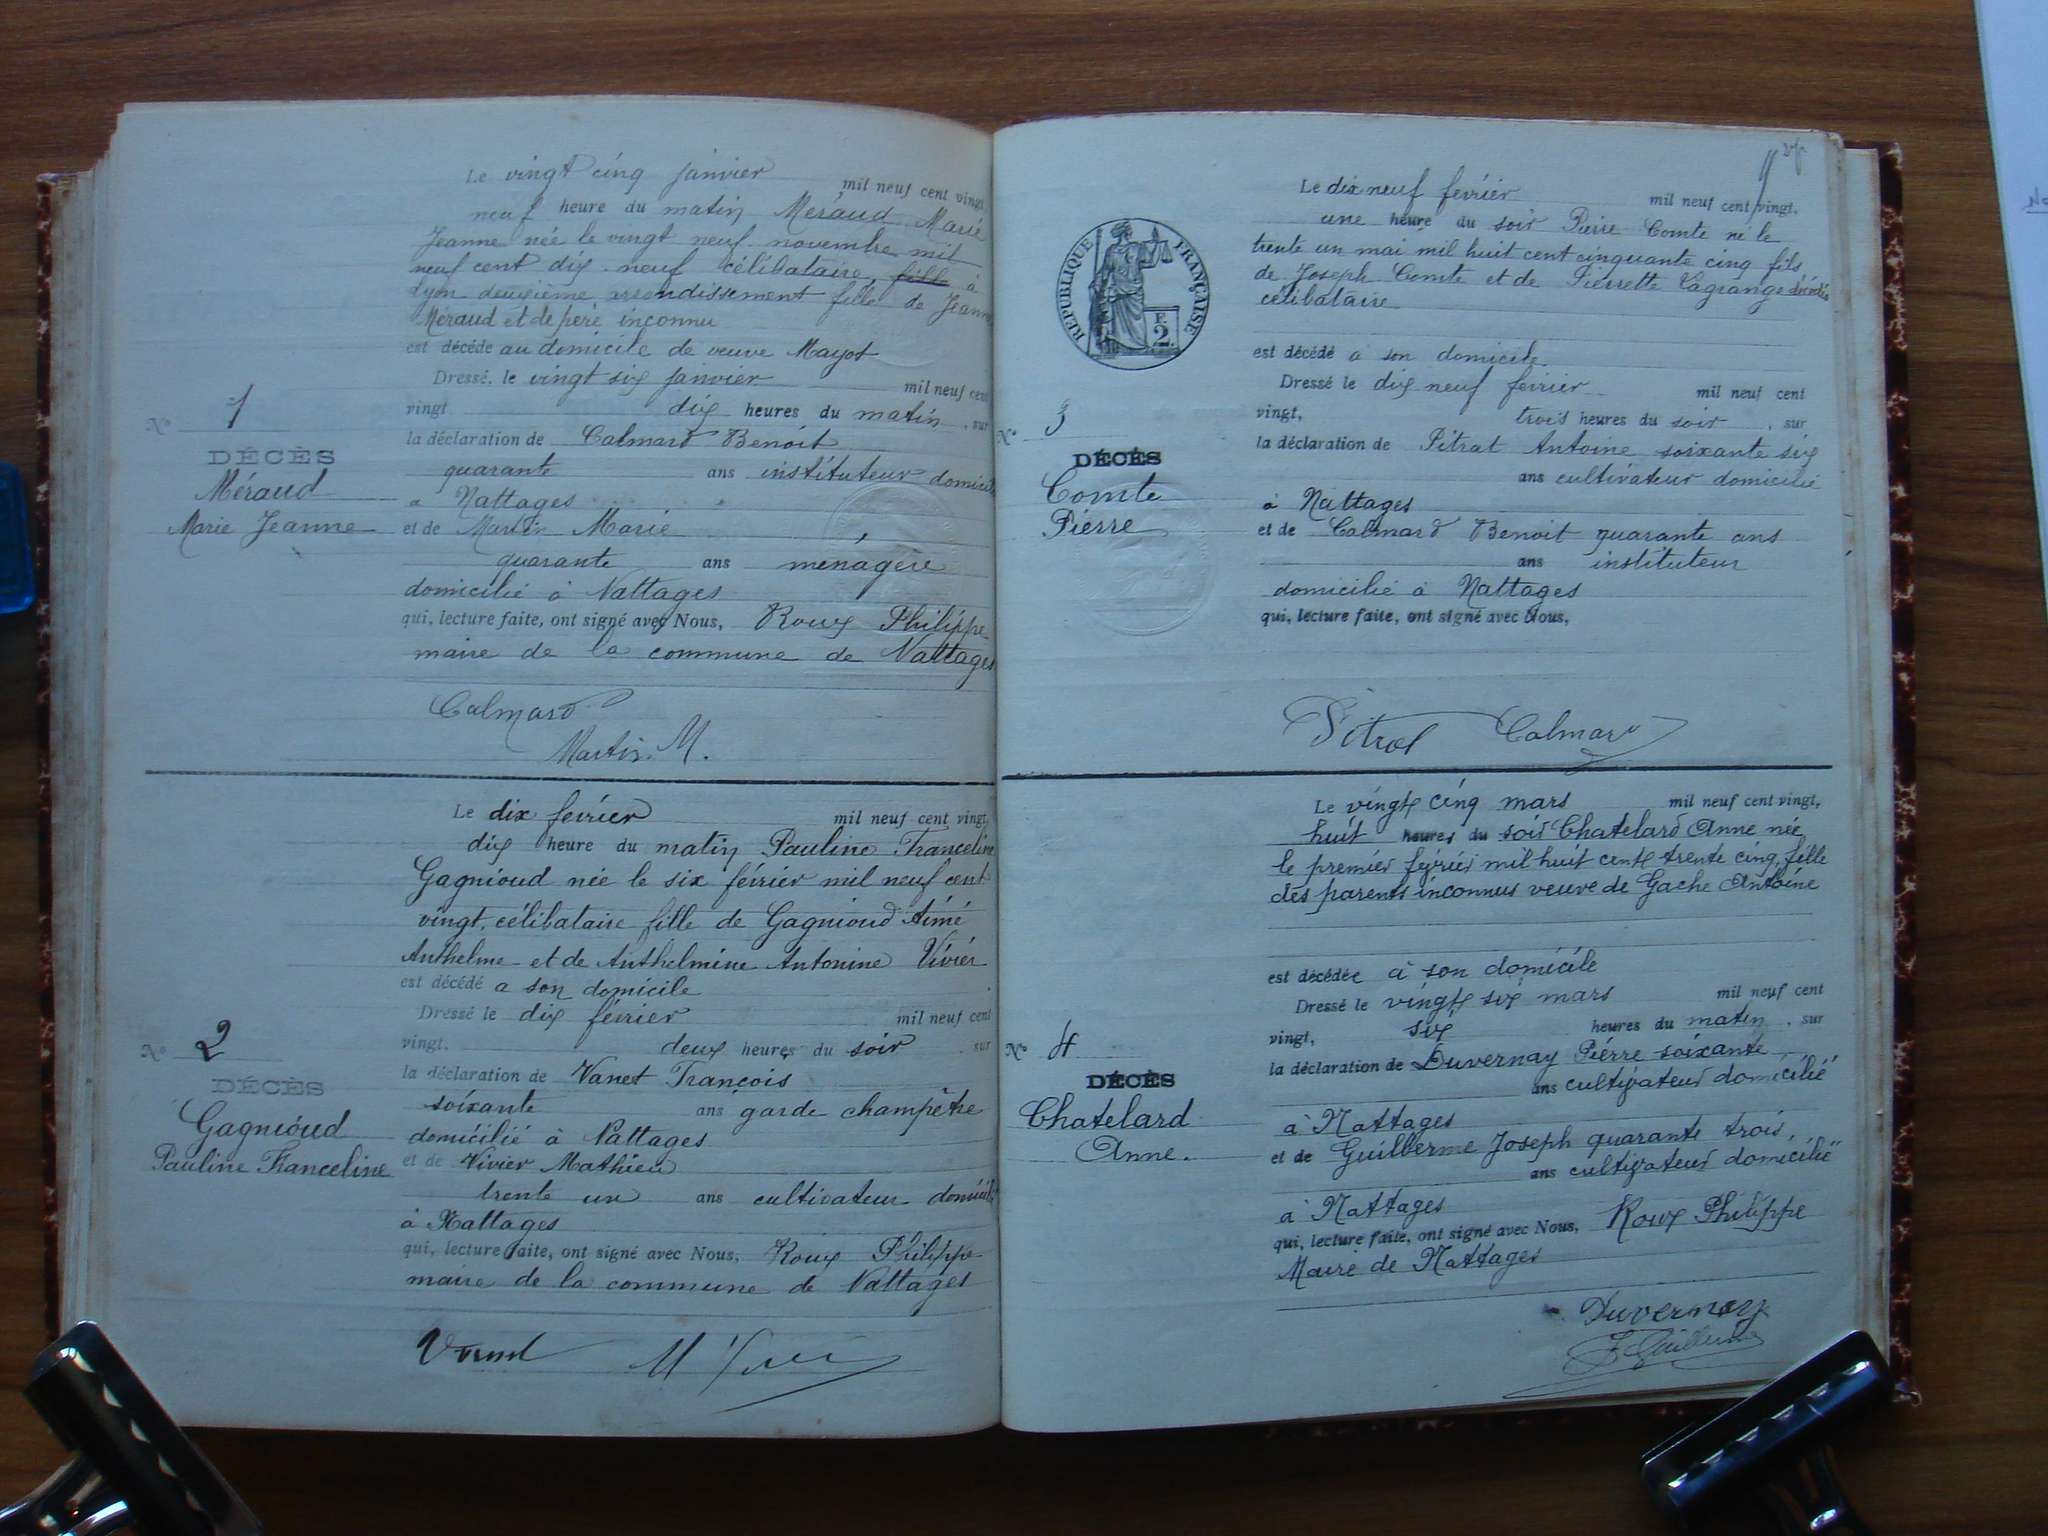 Le vingt cinq janvier mil neuf cent vingt
neuf heure du matin Méraud Marie
Jeanne née le vingt neuf novembre mil
neuf cent dix neuf célibataire fille à
Lyon deuxième arrondissement fille de Jeanne
Méraud et de père inconnu
est décédé au domicile de veuve Mayot
Dressé, le vingt six janvier mil neuf cent
vingt dix heures du matin, sur
la déclaration de Calmard Benoit
quarante ans instituteur domicilié
a Nattages
et de Martin Marie
quarante ans ménagère
domicilié à Nattages
qui, lecture faite, ont signé avec Nous, Roux Philippe
maire de la commune de Nattages
Nº 1
DÉCÈS
Méraud
Marie Jeanne
Calmard
Martin M.
Le dix février mil neuf cent vingt,
dix heure du matin Pauline Franceline
Gagnioud née le six février mil neuf cent
vingt, célibataire fille de Gagnioud Aimé
Anthelme et de Anthelmine Antonine Vivier
est décédé a son domicile
Dressé le dix février mil neuf cent
vingt, deux heures du soir, sur
la déclaration de Vanet François
soixante ans garde champêtre
domicilié à Nattages
et de Vivier Mathieu
trente un ans cultivateur domicilié
à Nattages
qui, lecture faite, ont signé avec Nous, Roux Philippe
maire de la commune de Nattages
Nº 2
DÉCÈS
Gagnioud
Pauline Franceline
RÉPUBLIQUE FRANÇAISE
F.
2.
Le dix neuf février mil neuf cent vingt,
une heure du soir Pierre Comte né le
trente un mai mil huit cent cinquante cinq fils
de Joseph Comte et de Pierrette Lagrange décédés
célibataire
est décédé à son domicile
Dressé le dix neuf février mil neuf cent
vingt, trois heures du soir, sur
la déclaration de Pitrat Antoine soixante six
ans cultivateur domicilié
à Nattages
et de Calmard Benoit quarante ans
ans instituteur
domicilié à Nattages
qui, lecture faite, ont signé avec Nous,
Nº 3
DÉCÈS
Comte
Pierre
Pitrat Calmard
Le vingt cinq mars mil neuf cent vingt,
huit heures du soir Chatelard Anne née
le premier février mil huit cent trente cinq, fille
des parents inconnus veuve de Gache Antoine
est décédée à son domicile
Dressé le vingt six mars mil neuf cent
vingt, six heures du matin, sur
la déclaration de Duvernay Pierre soixante
ans cultivateur domicilié
à Nattages
et de Guilberme Joseph quarante trois
ans cultivateur domicilié
à Nattages
qui, lecture faite, ont signé avec Nous, Roux Philippe
Maire de Nattages
Nº 4
DÉCÈS
Chatelard
Anne.
Duvernay